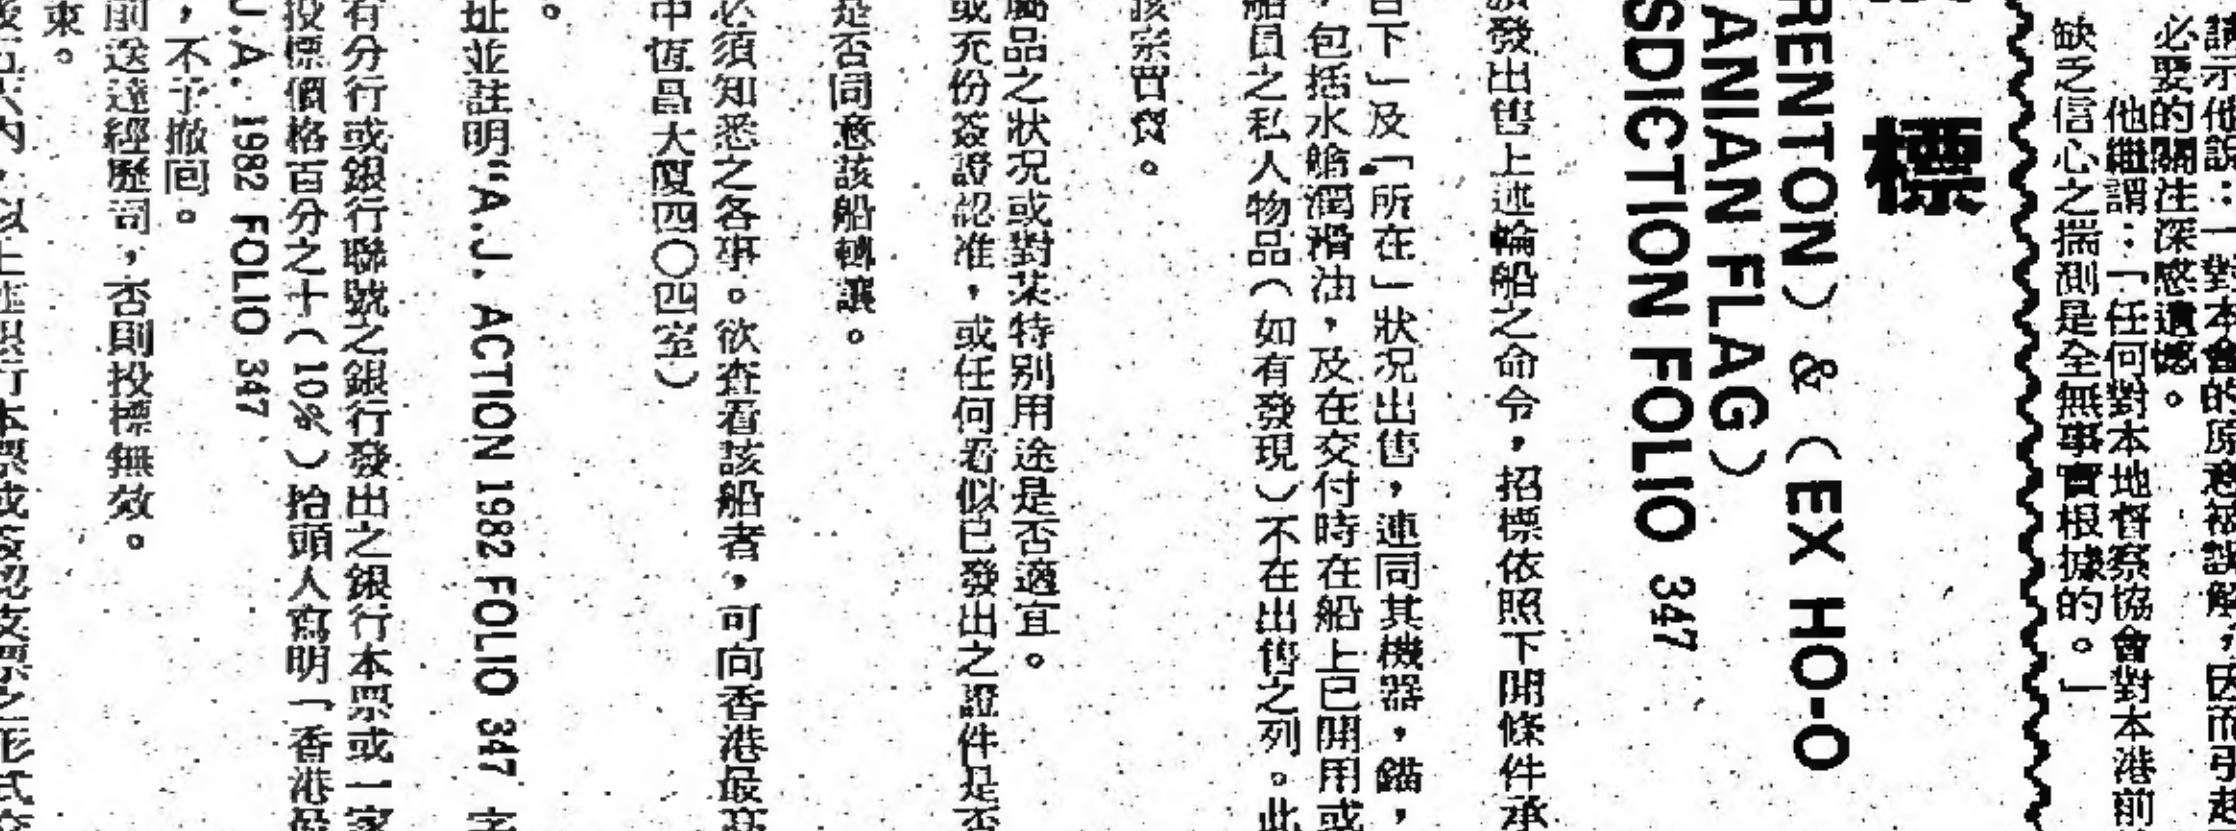 請示他說：「對本會的原意被誤解，因而引起
必要的關注深感遺憾。
他繼謂：「任何對本地督察協會對本港前
缺乏信心之揣測是全無事實根據的。」
標
RENTON) & (EX HO-O
ANIAN FLAG)
SDICTION FOLIO 347
發出售上述輪船之命令，招標依照下開條件承
下」及「所在」狀況出售，連同其機器，錨，
，包括水艙潤滑油，及在交付時在船上已開用或
船員之私人物品（如有發現）不在出售之列。此
該宗買賣。
屬品之狀況或對某特別用途是否適宜。
或充份簽證認准，或任何看似已發出之證件是否
是否同意該船轉讓。
必須知悉之各事。欲查看該船者，可向香港最高
中恆昌大廈四〇四室）
。
址並註明“A.J. ACTION 1982 FOLIO 347 字
有分行或銀行聯號之銀行發出之銀行本票或一家
投標價格百分之十（10%）抬頭人寫明「香港最
J.A. 1982 FOLIO 347
，不予撤回。
前送達經歷司，否則投標無效。
束。
內，以上述銀行本票或該認支票之形式